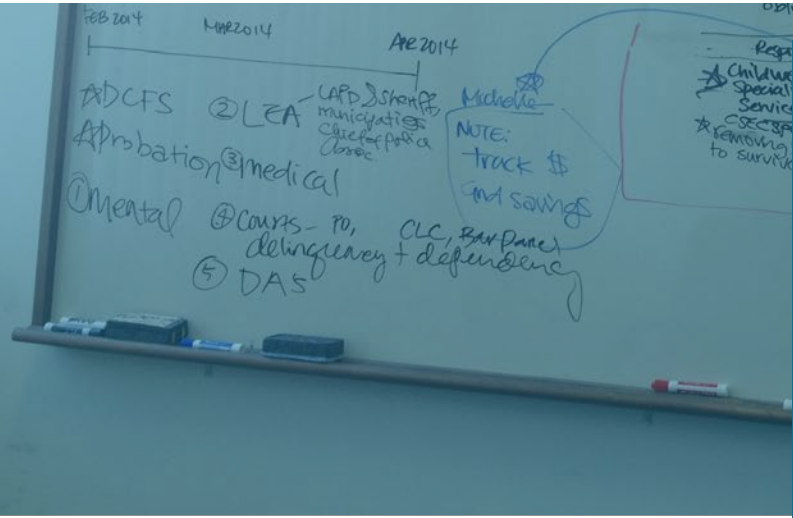 FEB 2014
MAR 2014
APR 2014
☆DCFS
☆Probation
① Mental
② LEA - LAPD & Sheriff,
municipaties
chief of police
③ medical
④ Courts - PD, CLC, Bar Panel
delinquency + dependency
⑤ DAS
Michelle
NOTE:
track $
and savings
☆ Childwe
Speciali
Servic
☆ removing
to surviv